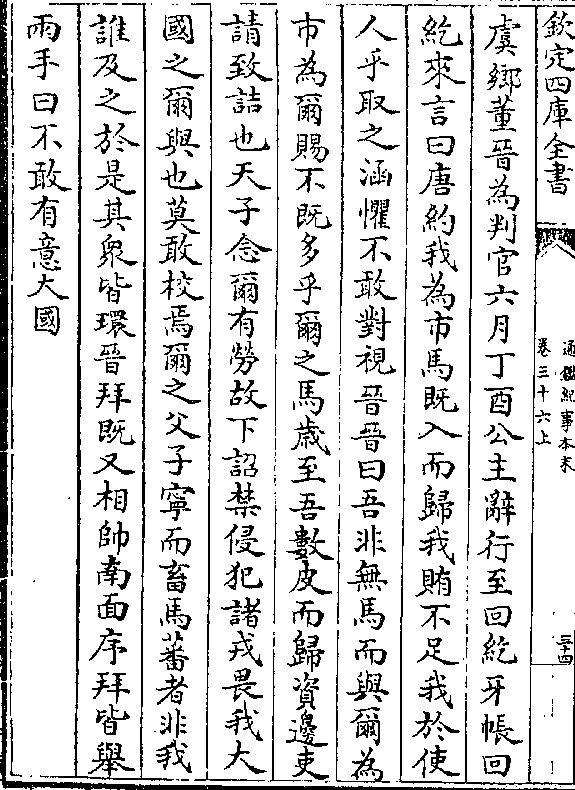 欽定四庫全書
通鑑紀事本末
卷三十六上
三十四
虞鄉董晉為判官六月丁酉公主辭行至回紇牙帳回
紇來言曰唐約我為市馬既入而歸我賄不足我於使
人乎取之涵懼不敢對視晉晉曰吾非無馬而與爾為
市為爾賜不既多乎爾之馬歲至吾數皮而歸資邊吏
請致詰也天子念爾有勞故下詔禁侵犯諸戎畏我大
國之爾與也莫敢校焉爾之父子寧而畜馬蕃者非我
誰及之於是其衆皆環晉拜既又相帥南面序拜皆舉
兩手曰不敢有意大國